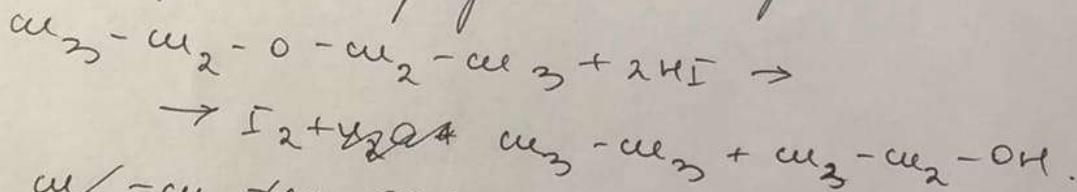 CH₃ - CH₂ - O - CH₂ - CH₃ + 2HI →
→ I₂ + CH₃ - CH₃ + CH₃ - CH₂ - OH.